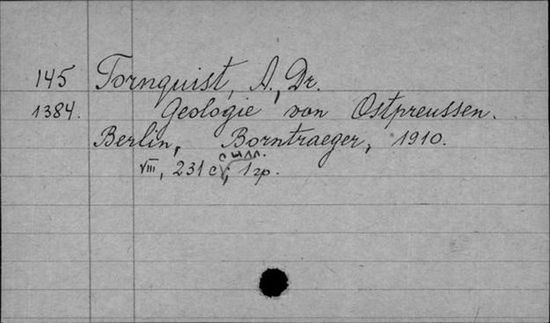 145 Tornquist, A., Dr.
1384. Geologie von Ostpreussen.
Berlin, Borntraeger, 1910.
с илл.
VIII, 231 с; 1 гр.